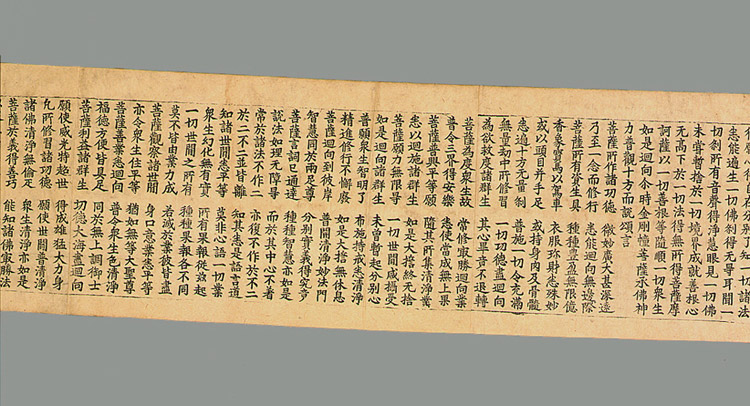 知一切諸法
悉能遍往一切佛刹得无㝵耳聞一
切刹所有音聲得淨慧眼見一切佛
未嘗暫捨於一切境界成就善根心
无高下於一切法得無所得菩薩摩
訶薩以一切善根等隨順一切衆生
如是迴向尒時金剛幢菩薩承佛神
力普觀十方而說頌言
菩薩所作諸功德 微妙廣大甚深遠
乃至一念而修行 悉能迴向無邊際
菩薩所有資生具 種種豐盈無限億
香象寳馬以駕車 衣服珎財悉殊妙
或以頭目并手足 或持身肉及骨髓
悉遍十方无量刹 普施一切令充滿
無量劫中所修習 一切功德盡迴向
為欲救度諸群生 其心畢竟不退轉
菩薩為度衆生故 常修最勝迴向業
普令三界得安樂 悉使當成無上果
菩薩普興平等願 隨其所集清淨業
悉以迴施諸群生 如是大捨終无捨
菩薩願力無限㝵 一切世間咸攝受
如是迴向諸群生 未曾暫起分別心
普願衆生智明了 布施持戒悉清淨
精進修行不懈廢 如是大捨無休息
菩薩迴向到彼岸 普開清淨妙法門
智慧同於兩足尊 分別實義得究竟
菩薩言詞已通達 種種智慧亦如是
說法如理无障㝵 而於其中心不著
常於諸法不作二 亦復不作於不二
於二不二並皆離 知其悉是語言道
知諸世間悉平等 莫非心語一切業
衆生幻化無有實 所有果報從茲起
一切世間之所有 種種果報各不同
莫不皆由業力成 若滅於業彼皆盡
菩薩觀察諸世間 身口意業悉平等
亦令衆生住平等 猶如無等大聖尊
菩薩善業悉迴向 普令衆生色清淨
福德方便皆具足 同於無上調御士
菩薩利益諸群生 功德大海盡迴向
願使威光特超世 得成雄猛大力身
凡所修習諸功德 願使世間普清淨
諸佛清淨無倫疋 衆生清淨亦如是
菩薩於義得善巧 能知諸佛最勝法